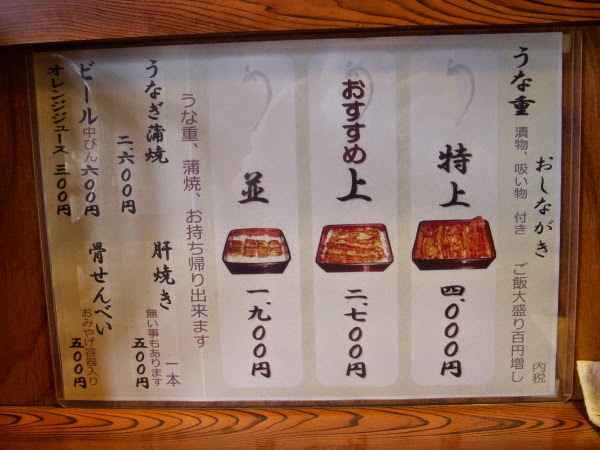 おしながき
うな重 漬物、吸い物 付き ご飯大盛り百円増し 内税
特上 四、000円
おすすめ 上 二、七00円
並 一、九00円
うな重、蒲焼、お持ち帰り出来ます
うなぎ蒲焼 二、六00円
肝焼き 一本 五00円
無い事もあります
ビール 中びん 六00円
オレンジジュース 三00円
骨せんべい 五00円
おみやげ容器入り